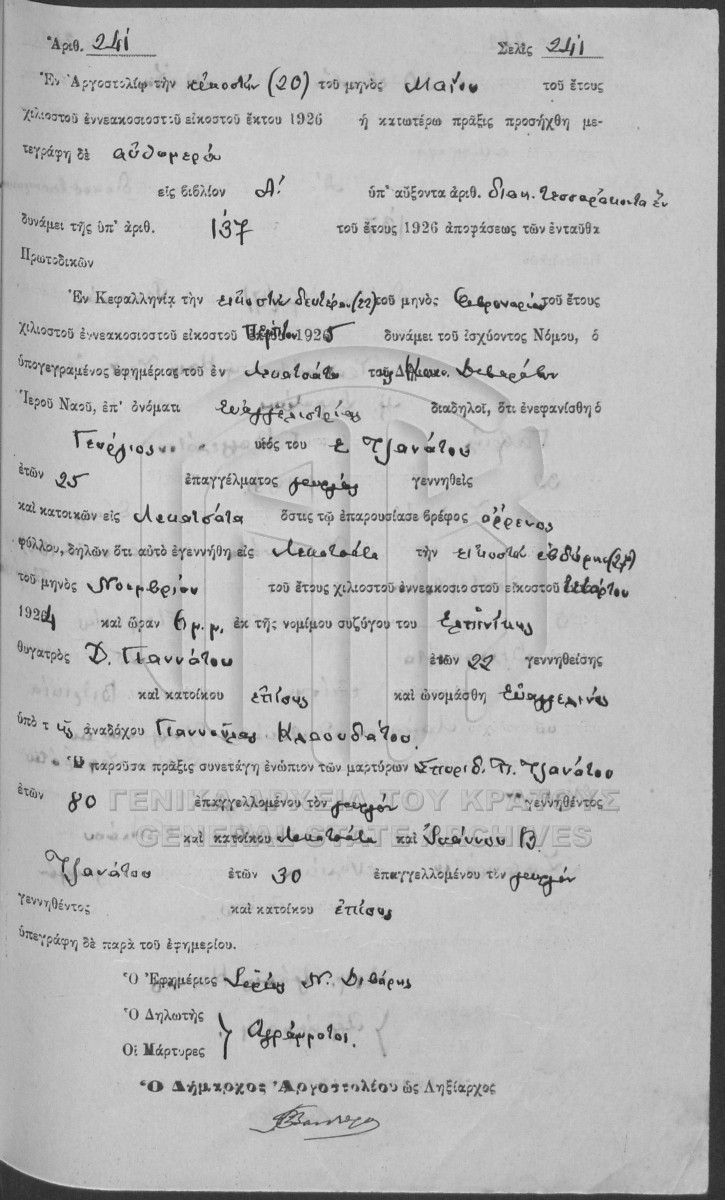 Ἀριθ. 241 Σελὶς 241
Ἐν Ἀργοστολίῳ τὴν εἰκοστήν (20) τοῦ μηνὸς Μαΐου τοῦ ἔτους
χιλιοστοῦ ἐννεακοσιοστοῦ εἰκοστοῦ ἕκτου 1926 ἡ κατωτέρω πρᾶξις προσήχθη με-
τεγράφη δὲ αὐθημερόν
εἰς βιβλίον Α΄ ὑπ' αὔξοντα ἀριθ. διακ. τεσσαράκοντα ἓν
δυνάμει τῆς ὑπ' ἀριθ. 137 τοῦ ἔτους 1926 ἀποφάσεως τῶν ἐνταῦθα
Πρωτοδικῶν
Ἐν Κεφαλληνίᾳ τὴν εἰκοστὴν δευτέραν (22) τοῦ μηνὸς Φεβρουαρίου τοῦ ἔτους
χιλιοστοῦ ἐννεακοσιοστοῦ εἰκοστοῦ πέμπτου 1925 δυνάμει τοῦ ἰσχύοντος Νόμου, ὁ
ὑπογεγραμένος ἐφημέριος τοῦ ἐν Λεκατσάτα τοῦ Διβαράτων
Ἱεροῦ Ναοῦ, ἐπ' ὀνόματι Εὐαγγελιστρίας διαδηλοῖ, ὅτι ἐνεφανίσθη ὁ
Γεώργιος υἱὸς του Σ Τζανάτου
ἐτῶν 25 ἐπαγγέλματος γεωργὸς γεννηθεὶς
καὶ κατοικῶν εἰς Λεκατσάτα ὅστις τῷ ἐπαρουσίασε βρέφος ἄρρενος
φύλλου, δηλῶν ὅτι αὐτὸ ἐγεννήθη εἰς Λεκατσάτα τὴν εἰκοστὴν ἑβδόμην (27)
τοῦ μηνὸς Νοεμβρίου τοῦ ἔτους χιλιοστοῦ ἐννεακοσιοστοῦ εἰκοστοῦ τετάρτου
1924 καὶ ὥραν 6 μ.μ. ἐκ τῆς νομίμου συζύγου του Ἐρπινίκης
θυγατρὸς Δ. Γιαννάτου ἐτῶν 22 γεννηθείσης
καὶ κατοίκου ἐπίσης καὶ ὠνομάσθη Εὐαγγελινός
ὑπὸ τ ῆς ἀναδόχου Γιαννούλας Κλαουδάτου.
Ἡ παροῦσα πρᾶξις συνετάγη ἐνώπιον τῶν μαρτύρων Σπυριδ. Π. Τζανάτου
ἐτῶν 80 ἐπαγγελλομένου τὸν γεωργόν γεννηθέντος
ΓΕΝΙΚΑ ΑΡΧΕΙΑ ΤΟΥ ΚΡΑΤΟΥΣ
GENERAL STATE ARCHIVES
καὶ κατοίκου Λεκατσάτα καὶ Ἰωάννου Β.
Τζανάτου ἐτῶν 30 ἐπαγγελλομένου τὸν γεωργόν
γεννηθέντος καὶ κατοίκου ἐπίσης
ὑπεγράφη δὲ παρὰ τοῦ ἐφημερίου.
Ὁ Ἐφημέριος Ἱερεὺς Ν. Διβάρης
Ὁ Δηλωτὴς
Οἱ Μάρτυρες } Ἀγράμματοι.
Ὁ Δήμαρχος Ἀργοστολίου ὡς Ληξίαρχος